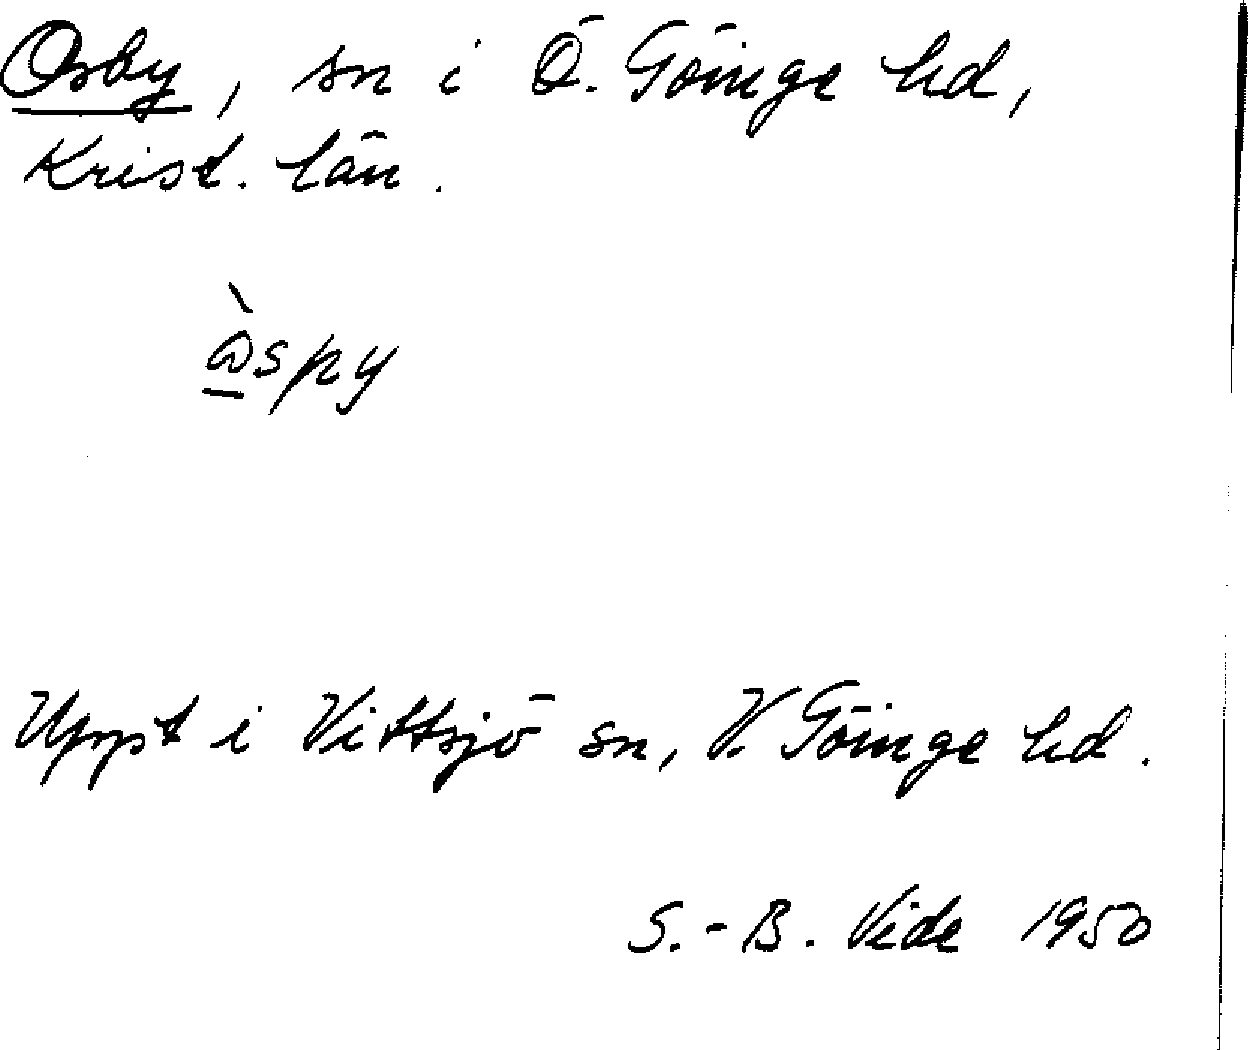 Osby, sn i Ö. Göinge hd,
Krist. län.
ὼspy
Uppt i Vittsjö sn, V. Göinge hd.
S.-B. Vide 1950